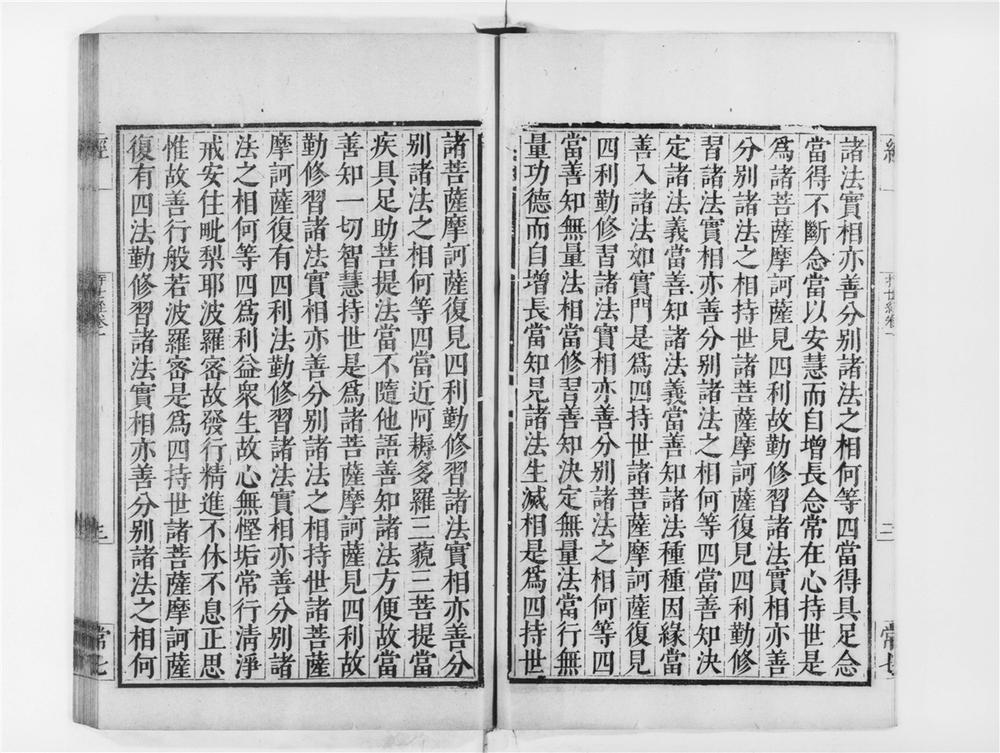 諸法實相亦善分别諸法之相何等四當得具足念
當得不斷念當以安慧而自增長念常在心持世是
爲諸菩薩摩訶薩見四利故勤修習諸法實相亦善
分别諸法之相持世諸菩薩摩訶薩復見四利勤修
習諸法實相亦善分别諸法之相何等四當善知決
定諸法義當善知諸法義當善知諸法種種因緣當
善入諸法如實門是爲四持世諸菩薩摩訶薩復見
四利勤修習諸法實相亦善分别諸法之相何等四
當善知無量法相當修習善知決定無量法當行無
量功德而自增長當知見諸法生滅相是爲四持世
諸菩薩摩訶薩復見四利勤修習諸法實相亦善分
别諸法之相何等四當近阿耨多羅三藐三菩提當
疾具足助菩提法當不隨他語善知諸法方便故當
善知一切智慧持世是爲諸菩薩摩訶薩見四利故
勤修習諸法實相亦善分别諸法之相持世諸菩薩
摩訶薩復有四利法勤修習諸法實相亦善分别諸
法之相何等四爲利益衆生故心無慳垢常行清淨
戒安住毗梨耶波羅密故發行精進不休不息正思
惟故善行般若波羅密是爲四持世諸菩薩摩訶薩
復有四法勤修習諸法實相亦善分别諸法之相何